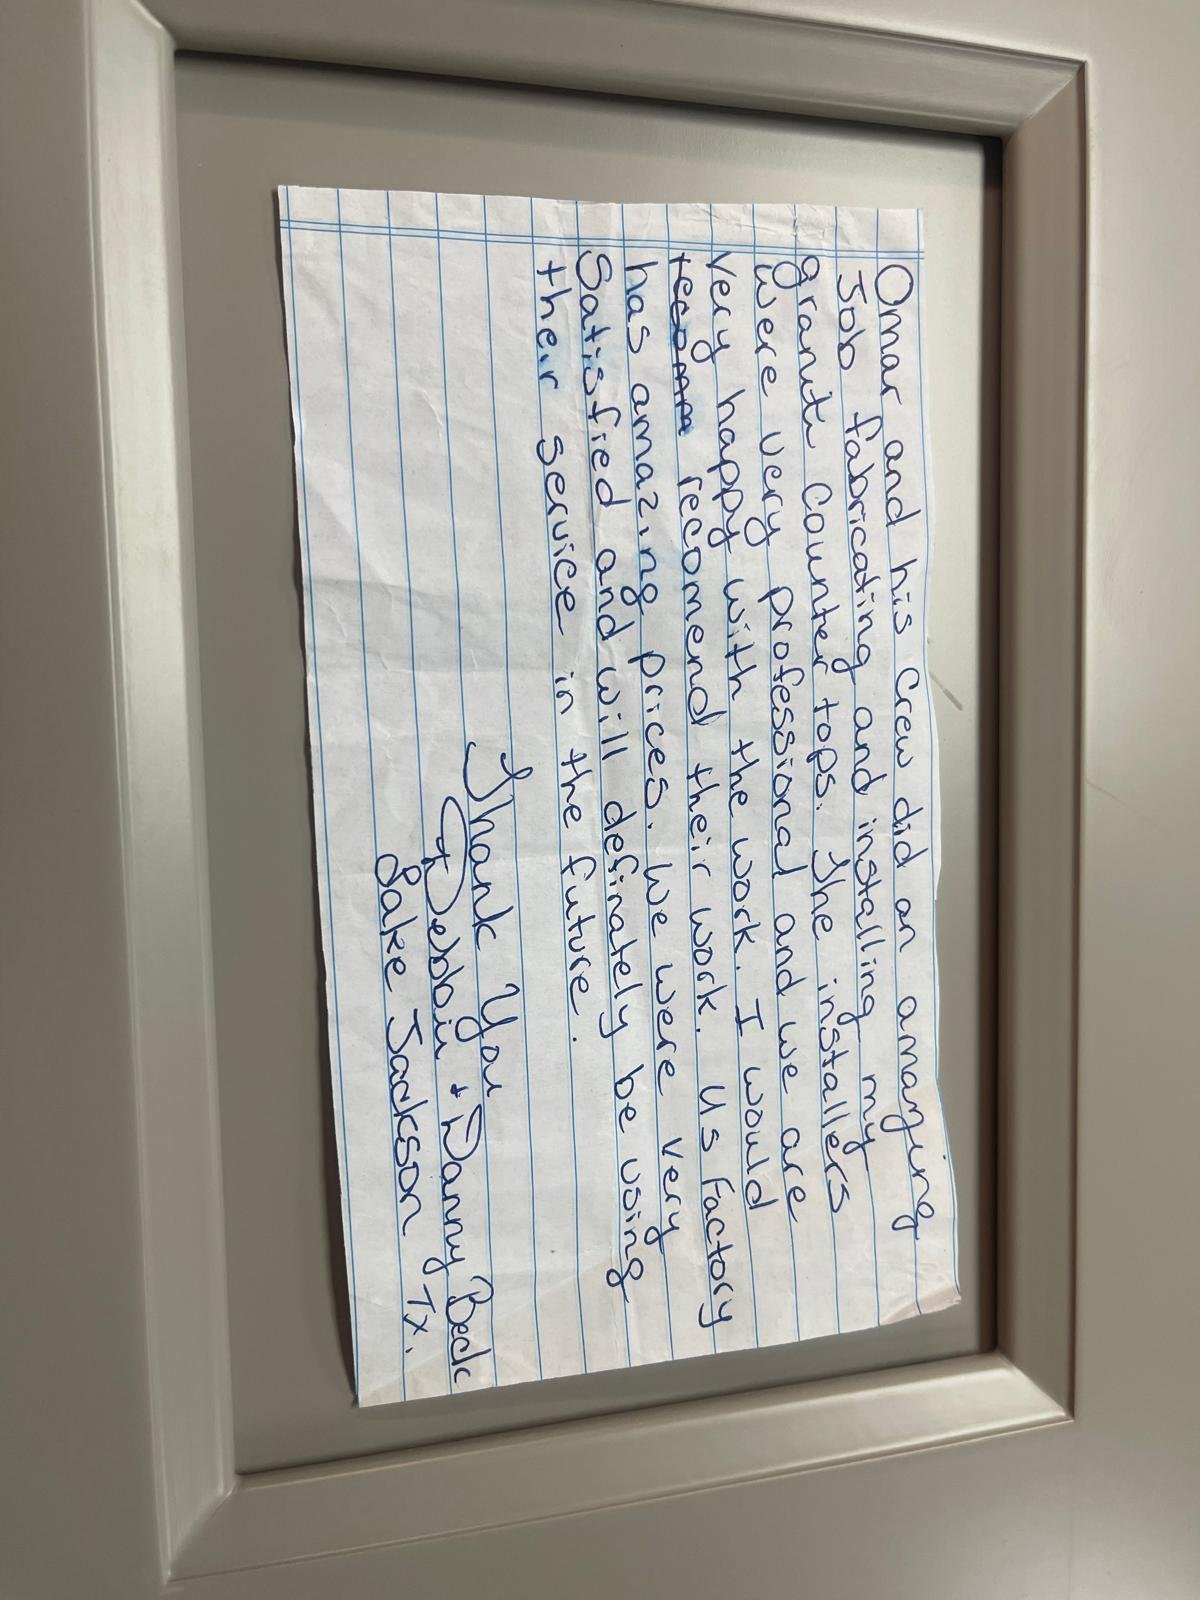 Omar and his crew did an amazing
Job fabricating and installing my
granite counter tops. The installers
were very professional and we are
very happy with the work. I would
recomm recomend their work. US Factory
has amazing prices. We were very
Satisfied and will definately be using
their service in the future.
Thank You
Debbie + Danny Beck
Lake Jackson Tx.